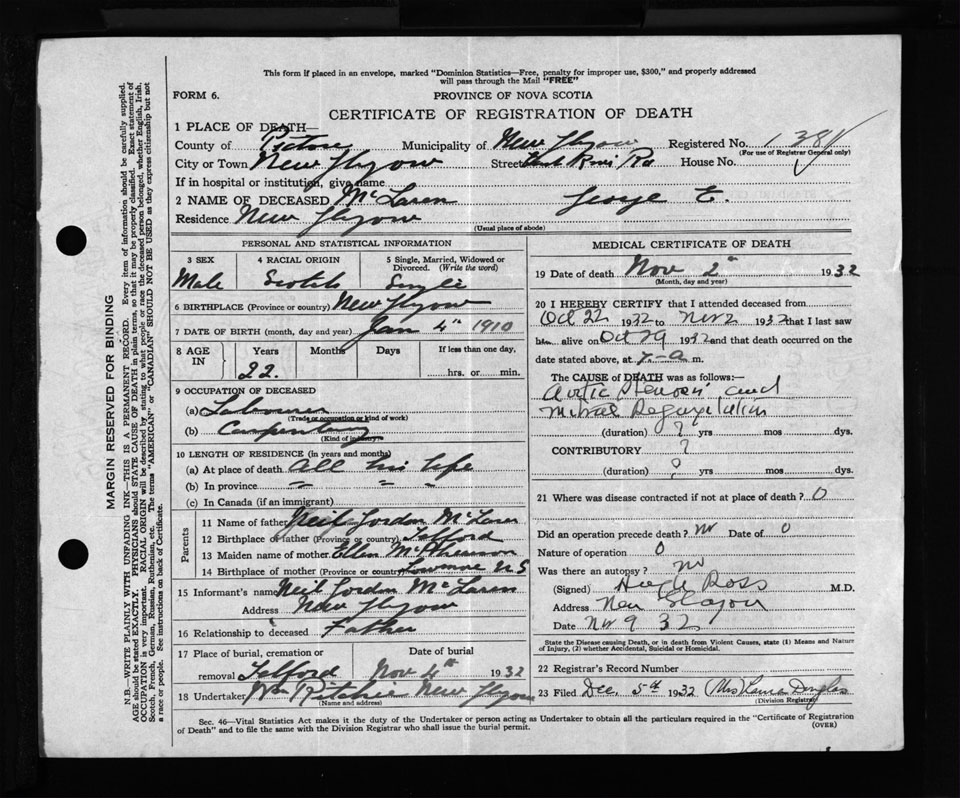 This form if placed in an envelope, marked "Dominion Statistics—Free, penalty for improper use, $300," and properly addressed
will pass through the Mail "FREE"
FORM 6.
PROVINCE OF NOVA SCOTIA
CERTIFICATE OF REGISTRATION OF DEATH
1 PLACE OF DEATH—
County of Pictou Municipality of New Glasgow Registered No.
(For use of Registrar General only)
City or Town New Glasgow Street Rd House No.
If in hospital or institution, give name
2 NAME OF DECEASED McLaren George E.
Residence New Glasgow
(Usual place of abode)
MARGIN RESERVED FOR BINDING
N.B.—WRITE PLAINLY WITH UNFADING INK—THIS IS A PERMANENT RECORD. Every item of information should be carefully supplied.
AGE should be stated EXACTLY. PHYSICIANS should STATE CAUSE OF DEATH in plain terms, so that it may be properly classified. Exact statement of
OCCUPATION is very important. RACIAL ORIGIN will be described by stating to what people or race the deceased person belonged, whether English, Irish,
Scotch, French, German, Russian, Ruthenian, etc. The terms "AMERICAN" or "CANADIAN" SHOULD NOT BE USED as they express citizenship but not
a race or people. See instructions on back of Certificate.
PERSONAL AND STATISTICAL INFORMATION
3 SEX
Male
4 RACIAL ORIGIN
Scotch
5 Single, Married, Widowed or
Divorced. (Write the word)
Single
6 BIRTHPLACE (Province or country) New Glasgow
7 DATE OF BIRTH (month, day and year) Jan 4th 1910
8 AGE
IN
Years
22.
Months
Days
If less than one day,
hrs. or min.
9 OCCUPATION OF DECEASED
(a) Labourer
(Trade or occupation or kind of work)
(b) Carpentry
(Kind of industry)
10 LENGTH OF RESIDENCE (in years and months)
(a) At place of death All his life
(b) In province " " "
(c) In Canada (if an immigrant)
Parents
11 Name of father Neil Gordon McLaren
12 Birthplace of father (Province or country) Telford
13 Maiden name of mother Ellen McPherson
14 Birthplace of mother (Province or country) N S
15 Informant's name Neil Gordon McLaren
Address New Glasgow
16 Relationship to deceased Father
17 Place of burial, cremation or Date of burial
removal Telford Nov 4th 1932
18 Undertaker Wm Ritchie New Glasgow
(Name and address)
MEDICAL CERTIFICATE OF DEATH
19 Date of death Nov 2nd 1932
(Month, day and year)
20 I HEREBY CERTIFY that I attended deceased from
Oct 22 1932 to Nov 2 1932 that I last saw
him alive on Oct 29 1932 and that death occurred on the
date stated above, at 7-a m.
The CAUSE of DEATH was as follows:—
Aortic Stenosis and
Mitral Regurgitation
(duration) ? yrs mos dys.
CONTRIBUTORY ?
(duration) ? yrs mos dys.
21 Where was disease contracted if not at place of death? 0
Did an operation precede death? No Date of 0
Nature of operation 0
Was there an autopsy? no
(Signed) Hugh Ross M.D.
Address New Glasgow
Date Nov 9 32
State the Disease causing Death, or in death from Violent Causes, state (1) Means and Nature
of Injury, (2) whether Accidental, Suicidal or Homicidal.
22 Registrar's Record Number
23 Filed Dec. 5th 1932 (Mrs) Laura Douglas
(Division Registrar)
Sec. 46—Vital Statistics Act makes it the duty of the Undertaker or person acting as Undertaker to obtain all the particulars required in the "Certificate of Registration
of Death" and to file the same with the Division Registrar who shall issue the burial permit.
(OVER)